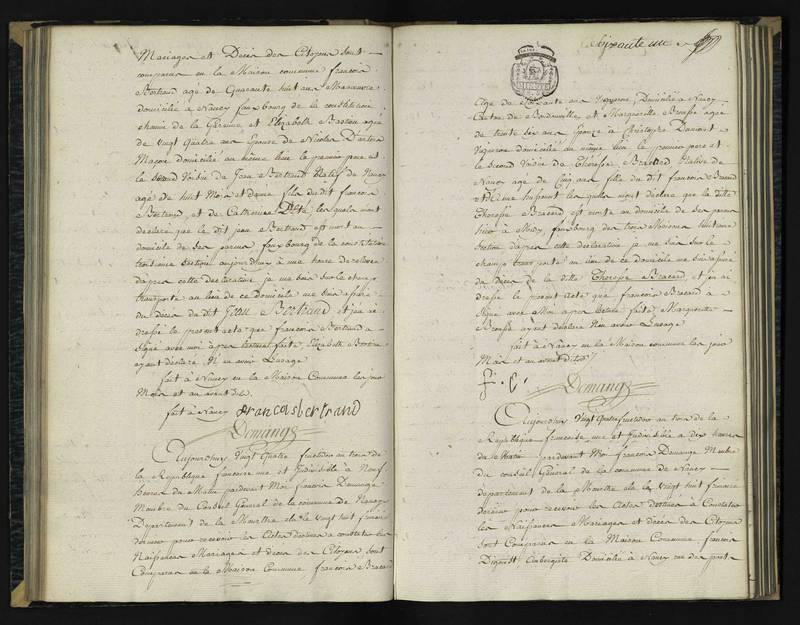 Mariages et Décès des Citoyens sont
comparus en la Maison commune françois
Bertrand agé de Quarante huit ans Manœuvre
domicilié à Nancy fauxbourg de la constitution
chemin de la Garenne et Elizabeth Bastien agée
de vingt quatre ans Epouse de Nicolas
Maçon domicilié au même lieu le premier pere et
la Second Voisine de Jean Bertrand Natif de Nancy
agé de huit Mois et demie fils dudit francois
Bertrand et de Catherine les quels mont
declaré que le dit jean Bertrand est mort au
domicile de ses parens fauxbourg de la constitution
troisieme Section aujourdhuy à une heure de relevée
dapres cette declaration je me suis sur le champ
transporté au lieu de ce domicile me suis assuré
du deces du dit Jean Bertrand et j'ai
dressé le present acte que francois Bertrand a
signé avec moi apres lecture faite, Elizabeth Bastien
ayant declaré N'en avoir L'usage
fait à Nancy en la Maison Commune les jour
Mois et an avant dit.
fait à Nancy francoisbertrand
Domange
Aujourdhuy Vingt Quatre fructidor an trois de
la Republique françoise une et Indivisible à Neuf
heures du Matin pardevant Moi françois Domange
Membre du Conseil Général de la commune de Nancy
Departement de la Meurthe elu le Vingt huit frimaire
dernier pour recevoir les Actes destinés à constater les
Naissances Mariages et deces des Citoyens sont
Comparus en la Maison Commune, francois Bracard
soixante une
Agé de ans Vigneron Domicilié à Nancy
et Marguerite
de trente Six ans Epouse à Christophe
Vigneron domiciliée au même lieu le premier pere et
la Second Voisine de Therese Bracard Native de
Nancy agée de Cinq ans fille du dit françois Bracard
et les quels mont declaré que la ditte
Therese Bracard est morte au domicile de ses parens
hier à Midy fauxbourg des trois Maisons huitieme
Section dapres cette declaration je me suis sur le
champ transporté au lieu de ce domicile me suis assuré
du Deces de la ditte Therese Bracard, et j'en ai
dressé le present acte que francois Bracard à
Signé avec Moi apres lecture faite, Marguerite
ayant declaré N'en avoir L'usage
fait à Nancy en la Maison commune les jour
Mois et an avant dit
Domange
Aujourdhuy Vingt Quatre fructidor an trois de la
Republique françoise une et Indivisible à dix heures
de Matin pardevant Moi francois Domange Membre
du conseil Général de la commune de Nancy
departement de la Meurthe elu le Vingt huit frimaire
dernier pour recevoir les Actes destinés à Constater
les Naissances Mariages et deces des Citoyens
sont Comparus en la Maison Commune francois
Aubergiste Domicilié à Nancy rue des ponts